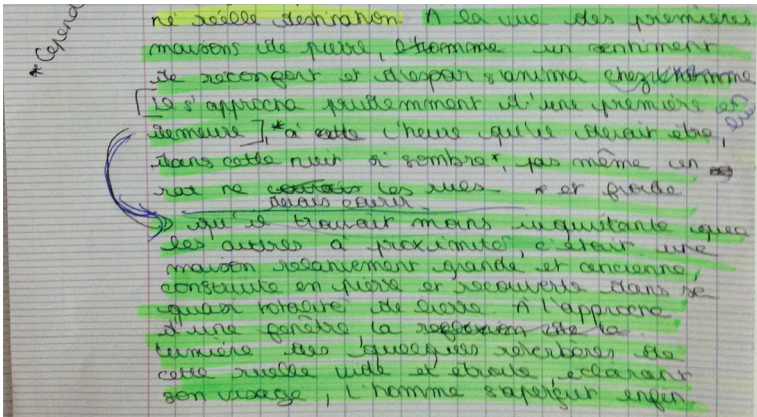 * Cepend
ne réelle destination. A la vue des premières
maisons de pierre, l'homme un sentiment
de reconfort et d'espoir s'anima chez l'homme
[Il s'approcha prudemment d'une première en
lui
demeure], *à cette l'heure qu'il devait être,
dans cette nuit si sombre*, pas même un
rat ne les rues * et froide
devais courir
qu'il trouvait moins inquiétante que
les autres à proximité, c'était une
maison relativement grande et ancienne,
construite en pierre et recouverte dans sa
quasi totalité de lierre. A l'approche
d'une fenêtre la reflexion de la
lumière des quelques réverbères de
cette ruelle vide et étroite, éclairant
son visage, l'homme s'aperçut enfin